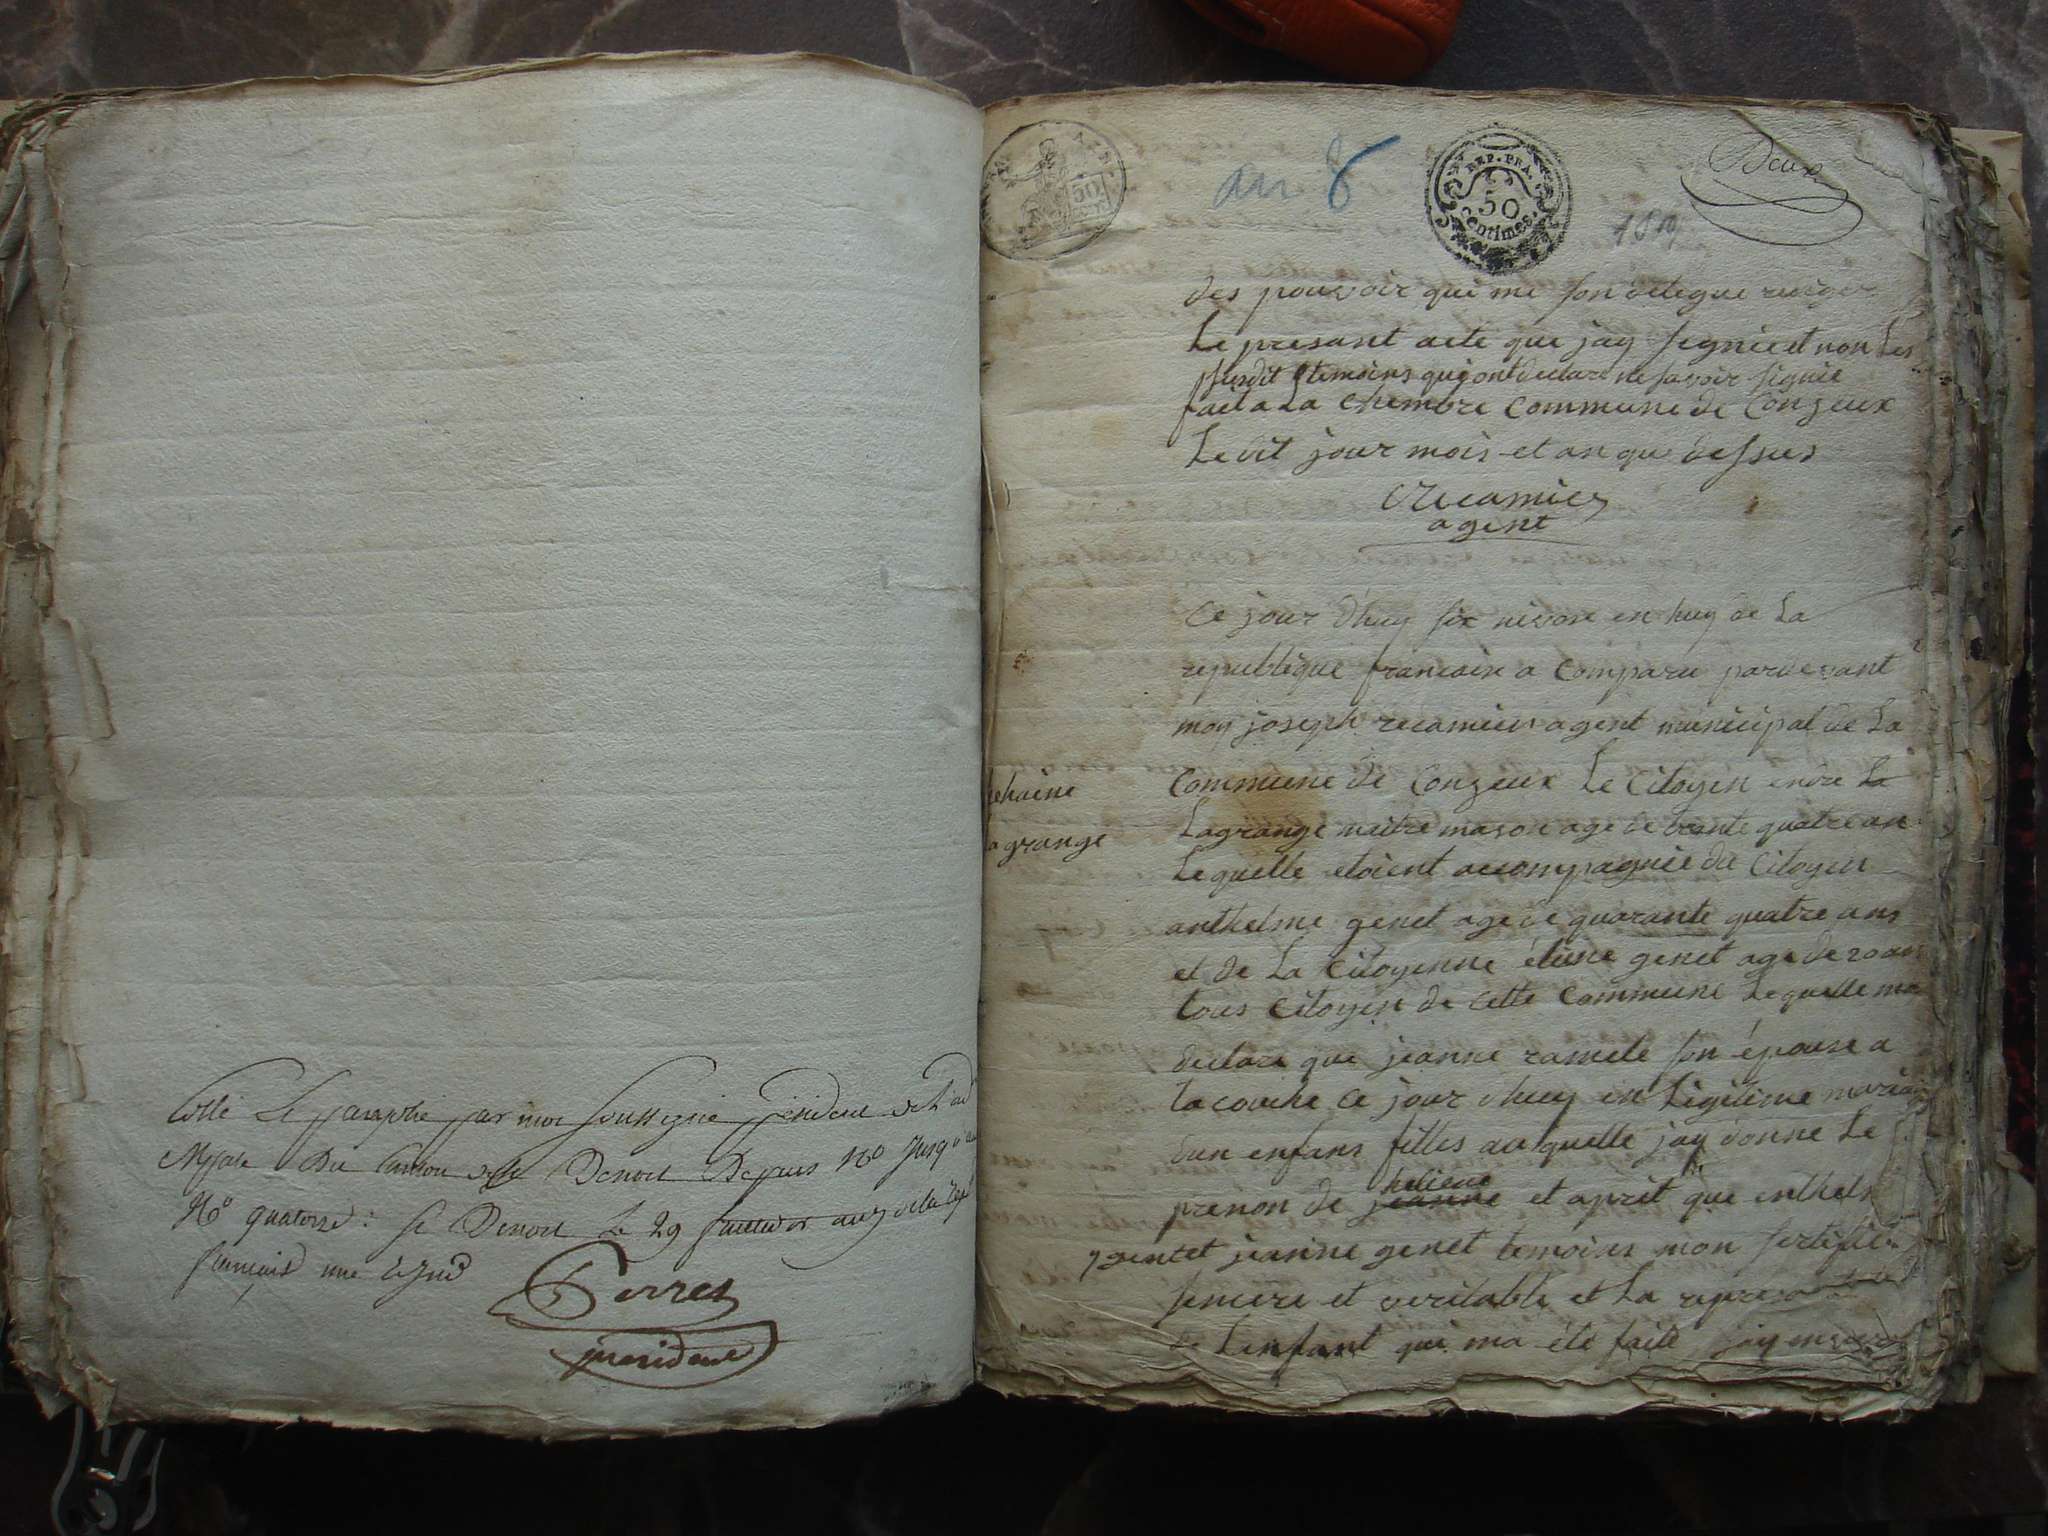 Cotté et paraphé par moi soussigné président de l'ad
Du Canton de Benoit Depuis No Jusqu'au
No quatorze : le 29
français une
Perret
président
an 8
REP. FRA.
50
Centimes.
50
Deux
des pouvoir qui me son delegue rediger
Le presant acte que jay signié et non Les
susdit temoins qui ont declare ne savoir signié
fait a La chembre commune de Conzeux
Le dit jour mois et an que dessus
Recamier
agent
Ce jour dhuy six nivose en huy de La
republique francaise a comparu pardevant
moy joseph recamier agent municipal de La
helaine
agrange
Commune de Conzeux Le Citoyen endre La
Lagrange maitre mason age de trante quatre an
Lequelle etoient accompagnié du Citoyen
anthelme genet age de quarante quatre ans
et de La Citoyenne genet age de 20 ans
tous Citoyen de cette Commune Lequelle ma
declare que jeanne ramele son épouse a
lacouché ce jour dhuy en Légitime mariag
dun enfans filles au quelle jay donne Le
helieine
prenon de jeanne et aprit que enthelm
genet et jeanne genet temoins mon sertifié
sencere et veritable et La
de Lenfant qui ma été faite jay en